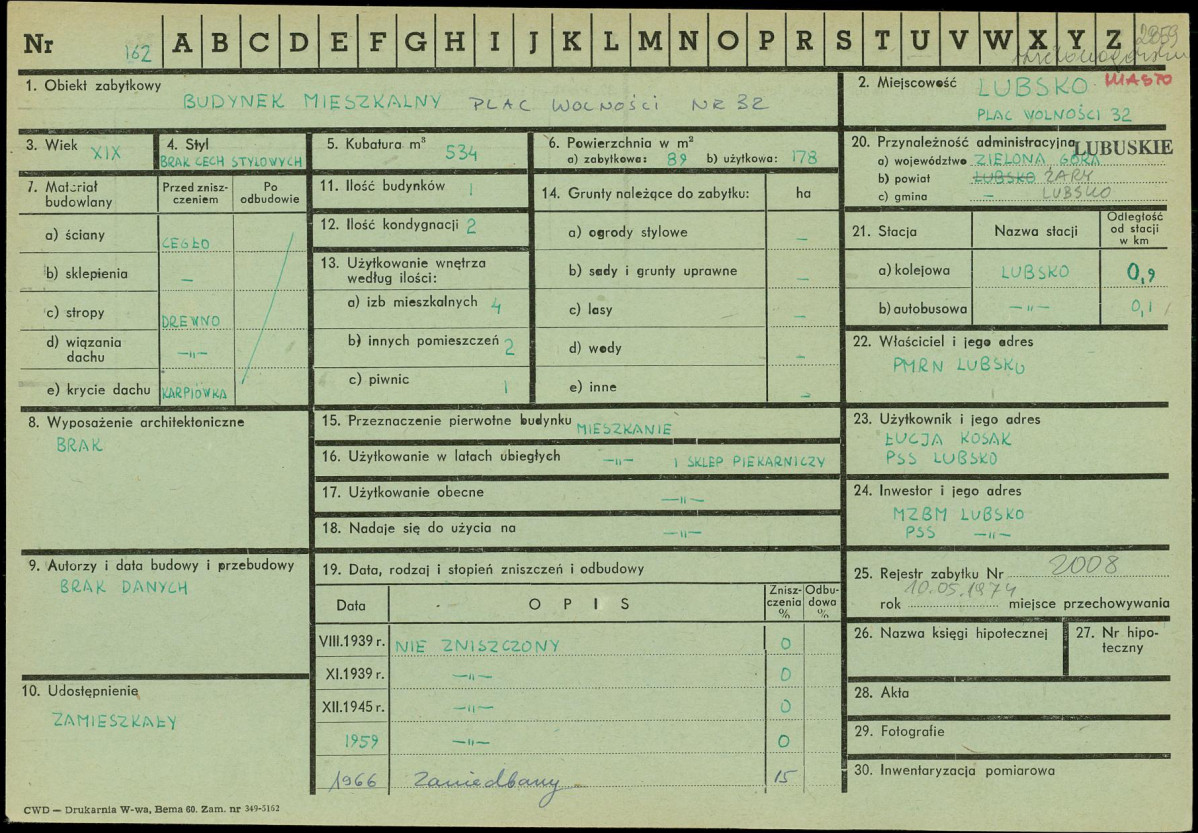 Nr 162 A B C D E F G H I J K L M N O P R S T U V W X Y Z
2859
1. Obiekt zabytkowy
BUDYNEK MIESZKALNY PLAC WOLNOŚCI NR 32
2. Miejscowość LUBSKO MIASTO
PLAC WOLNOŚCI 32
3. Wiek XIX
4. Styl
BRAK CECH STYLOWYCH
5. Kubatura m³ 534
6. Powierzchnia w m²
a) zabytkowa: 89 b) użytkowa: 178
20. Przynależność administracyjna LUBUSKIE
a) województwo ZIELONA GÓRA
b) powiat LUBSKO ŻARY
c) gmina – LUBSKO
7. Materiał budowlany
Przed znisz-
czeniem
Po
odbudowie
a) ściany CEGŁO
b) sklepienia –
c) stropy DREWNO
d) wiązania
dachu –"–
e) krycie dachu KARPIÓWKA
11. Ilość budynków 1
12. Ilość kondygnacji 2
13. Użytkowanie wnętrza
według ilości:
a) izb mieszkalnych 4
b) innych pomieszczeń 2
c) piwnic 1
14. Grunty należące do zabytku: ha
a) ogrody stylowe –
b) sady i grunty uprawne –
c) lasy –
d) wody –
e) inne –
21. Stacja
Nazwa stacji
Odległość
od stacji
w km
a) kolejowa LUBSKO 0,9
b) autobusowa –"– 0,1
22. Właściciel i jego adres
PMRN LUBSKO
8. Wyposażenie architektoniczne
BRAK
15. Przeznaczenie pierwotne budynku MIESZKANIE
16. Użytkowanie w latach ubiegłych –"– I SKLEP PIEKARNICZY
17. Użytkowanie obecne –"–
18. Nadaje się do użycia na –"–
23. Użytkownik i jego adres
ŁUCJA KOSAK
PSS LUBSKO
24. Inwestor i jego adres
MZBM LUBSKO
PSS –"–
9. Autorzy i data budowy i przebudowy
BRAK DANYCH
19. Data, rodzaj i stopień zniszczeń i odbudowy
Data
OPIS
Znisz-
czenia
%
Odbu-
dowa
%
VIII.1939 r. NIE ZNISZCZONY 0
XI.1939 r. –"– 0
XII.1945 r. –"– 0
1959 –"– 0
1966 Zaniedbany 15
25. Rejestr zabytku Nr 2008
10.05.1974
rok miejsce przechowywania
26. Nazwa księgi hipotecznej
27. Nr hipo-
teczny
10. Udostępnienie
ZAMIESZKAŁY
28. Akta
29. Fotografie
30. Inwentaryzacja pomiarowa
CWD — Drukarnia W-wa, Bema 60. Zam. nr 349-5162